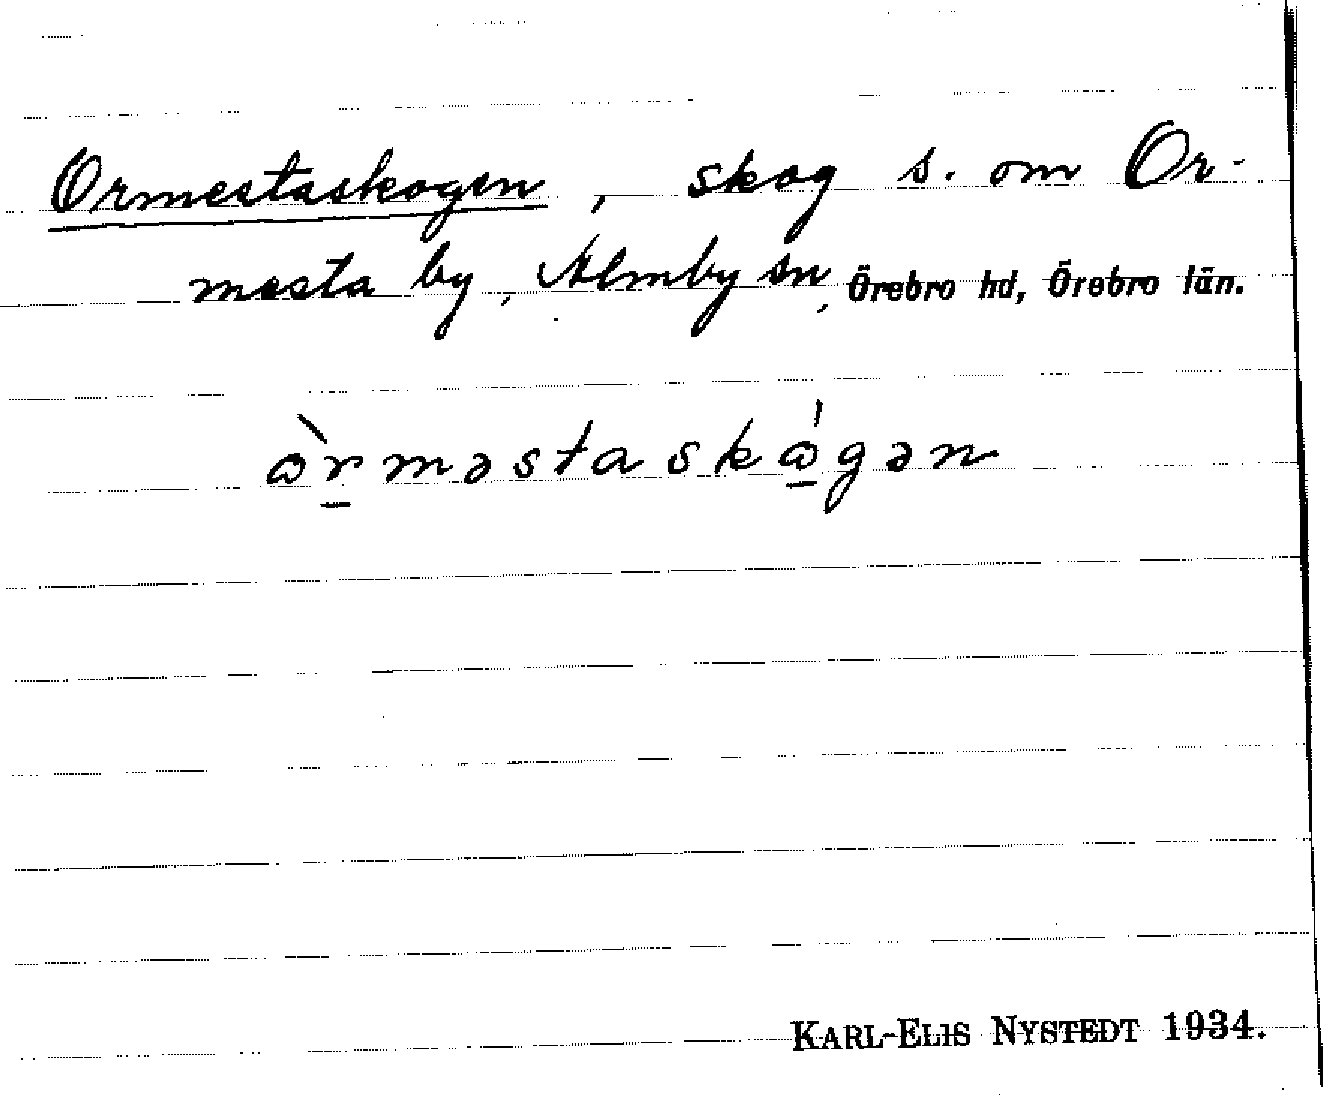 Ormestaskogen, skog s. om Or-
mesta by, Almby sn, Örebro hd, Örebro län.
ɷ̀r̠məstaskɷ̠́gən
KARL-ELIS NYSTEDT 1934.